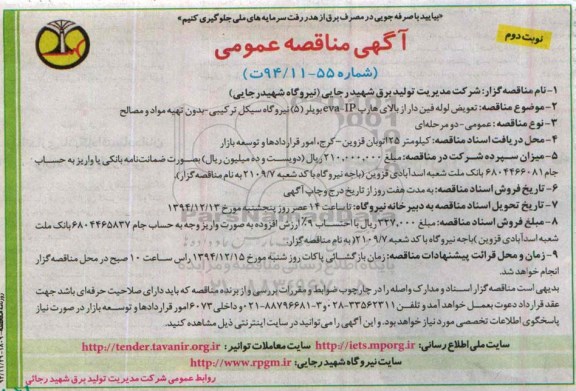 «بیایید با صرفه جویی در مصرف برق از هدر رفت سرمایه های ملی جلوگیری کنیم»
نوبت دوم
آگهی مناقصه عمومی
(شماره ۵۵-۹۴/۱۱ت)
۱- نام مناقصه گزار: شرکت مدیریت تولید برق شهید رجایی (نیروگاه شهید رجایی)
۲- موضوع مناقصه: تعویض لوله فین دار از بالای هارپ eva-IP بویلر (۵) نیروگاه سیکل ترکیبی -بدون تهیه مواد و مصالح
۳- نوع مناقصه: عمومی - دو مرحله ای
۴- محل دریافت اسناد مناقصه: کیلومتر ۲۵ اتوبان قزوین - کرج، امور قراردادها و توسعه بازار
۵- میزان سپرده شرکت در مناقصه: مبلغ ۲۱۰,۰۰۰,۰۰۰ ریال (دویست و ده میلیون ریال) بصورت ضمانت نامه بانکی یا واریز به حساب
جام ۶۸۰۴۴۶۶۰۸۱ بانک ملت شعبه اسدآبادی قزوین (باجه نیروگاه با کد شعبه ۲۱۰۹/۷ به نام مناقصه گزار).
۶- تاریخ فروش اسناد مناقصه: به مدت هفت روز از تاریخ درج و چاپ آگهی
۷- تاریخ تحویل اسناد مناقصه به دبیرخانه نیروگاه: تا ساعت ۱۴ عصر روز پنجشنبه مورخ ۱۳۹۴/۱۲/۱۳
۸- مبلغ فروش اسناد مناقصه: مبلغ ۳۲۷,۰۰۰ ریال با احتساب ۹٪ ارزش افزوده به صورت واریز وجه به حساب جام ۶۸۰۴۴۶۵۸۳۷ بانک ملت
شعبه اسدآبادی قزوین )باجه نیروگاه با کد شعبه ۲۱۰۹/۷( به نام مناقصه گزار.
۹- زمان و محل قرائت پیشنهادات مناقصه: زمان بازگشائی پاکات روز شنبه مورخ ۱۳۹۴/۱۲/۱۵ راس ساعت ۱۰ صبح در محل مناقصه گزار
انجام خواهد شد.
بدیهی است مناقصه گزار اسناد و مدارک واصله را در چارچوب ضوابط و مقررات بررسی و از برنده مناقصه که باید دارای صلاحیت حرفه ای باشد جهت
عقد قرارداد دعوت بعمل خواهد آمد و تلفن ۳۳۵۶۲۳۱۱-۰۲۸ و ۳-۸۸۷۹۶۶۸۱-۰۲۱ داخلی ۶۰۷۳ امور قراردادها و توسعه بازار در صورت نیاز
پاسخگوی اطلاعات تخصصی مورد نیاز خواهد بود. و این آگهی را می توانید در سایت اینترنتی ذیل مشاهده کنید.
سایت ملی اطلاع رسانی: http://iets.mporg.ir سایت معاملات توانیر: http://tender.tavanir.org.ir
سایت نیروگاه شهید رجایی: http://www.rpgm.ir
روابط عمومی شرکت مدیریت تولید برق شهید رجائی